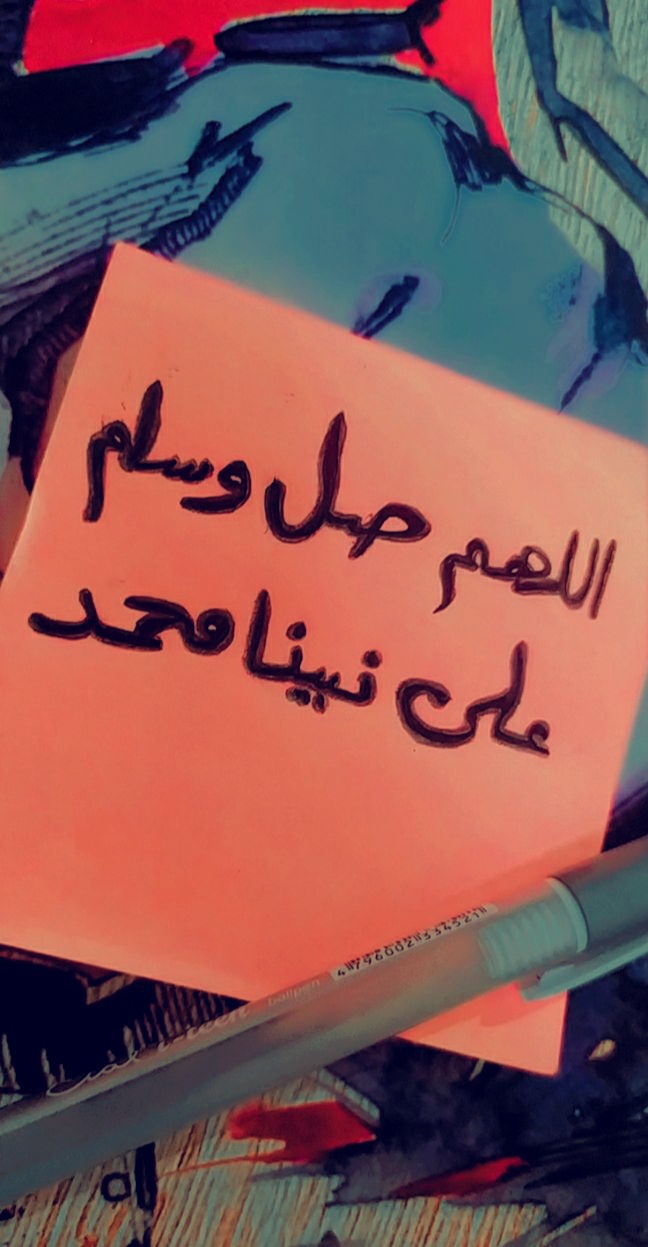 اللهم صل وسلم
على نبينا محمد
4796002334521
ballpen